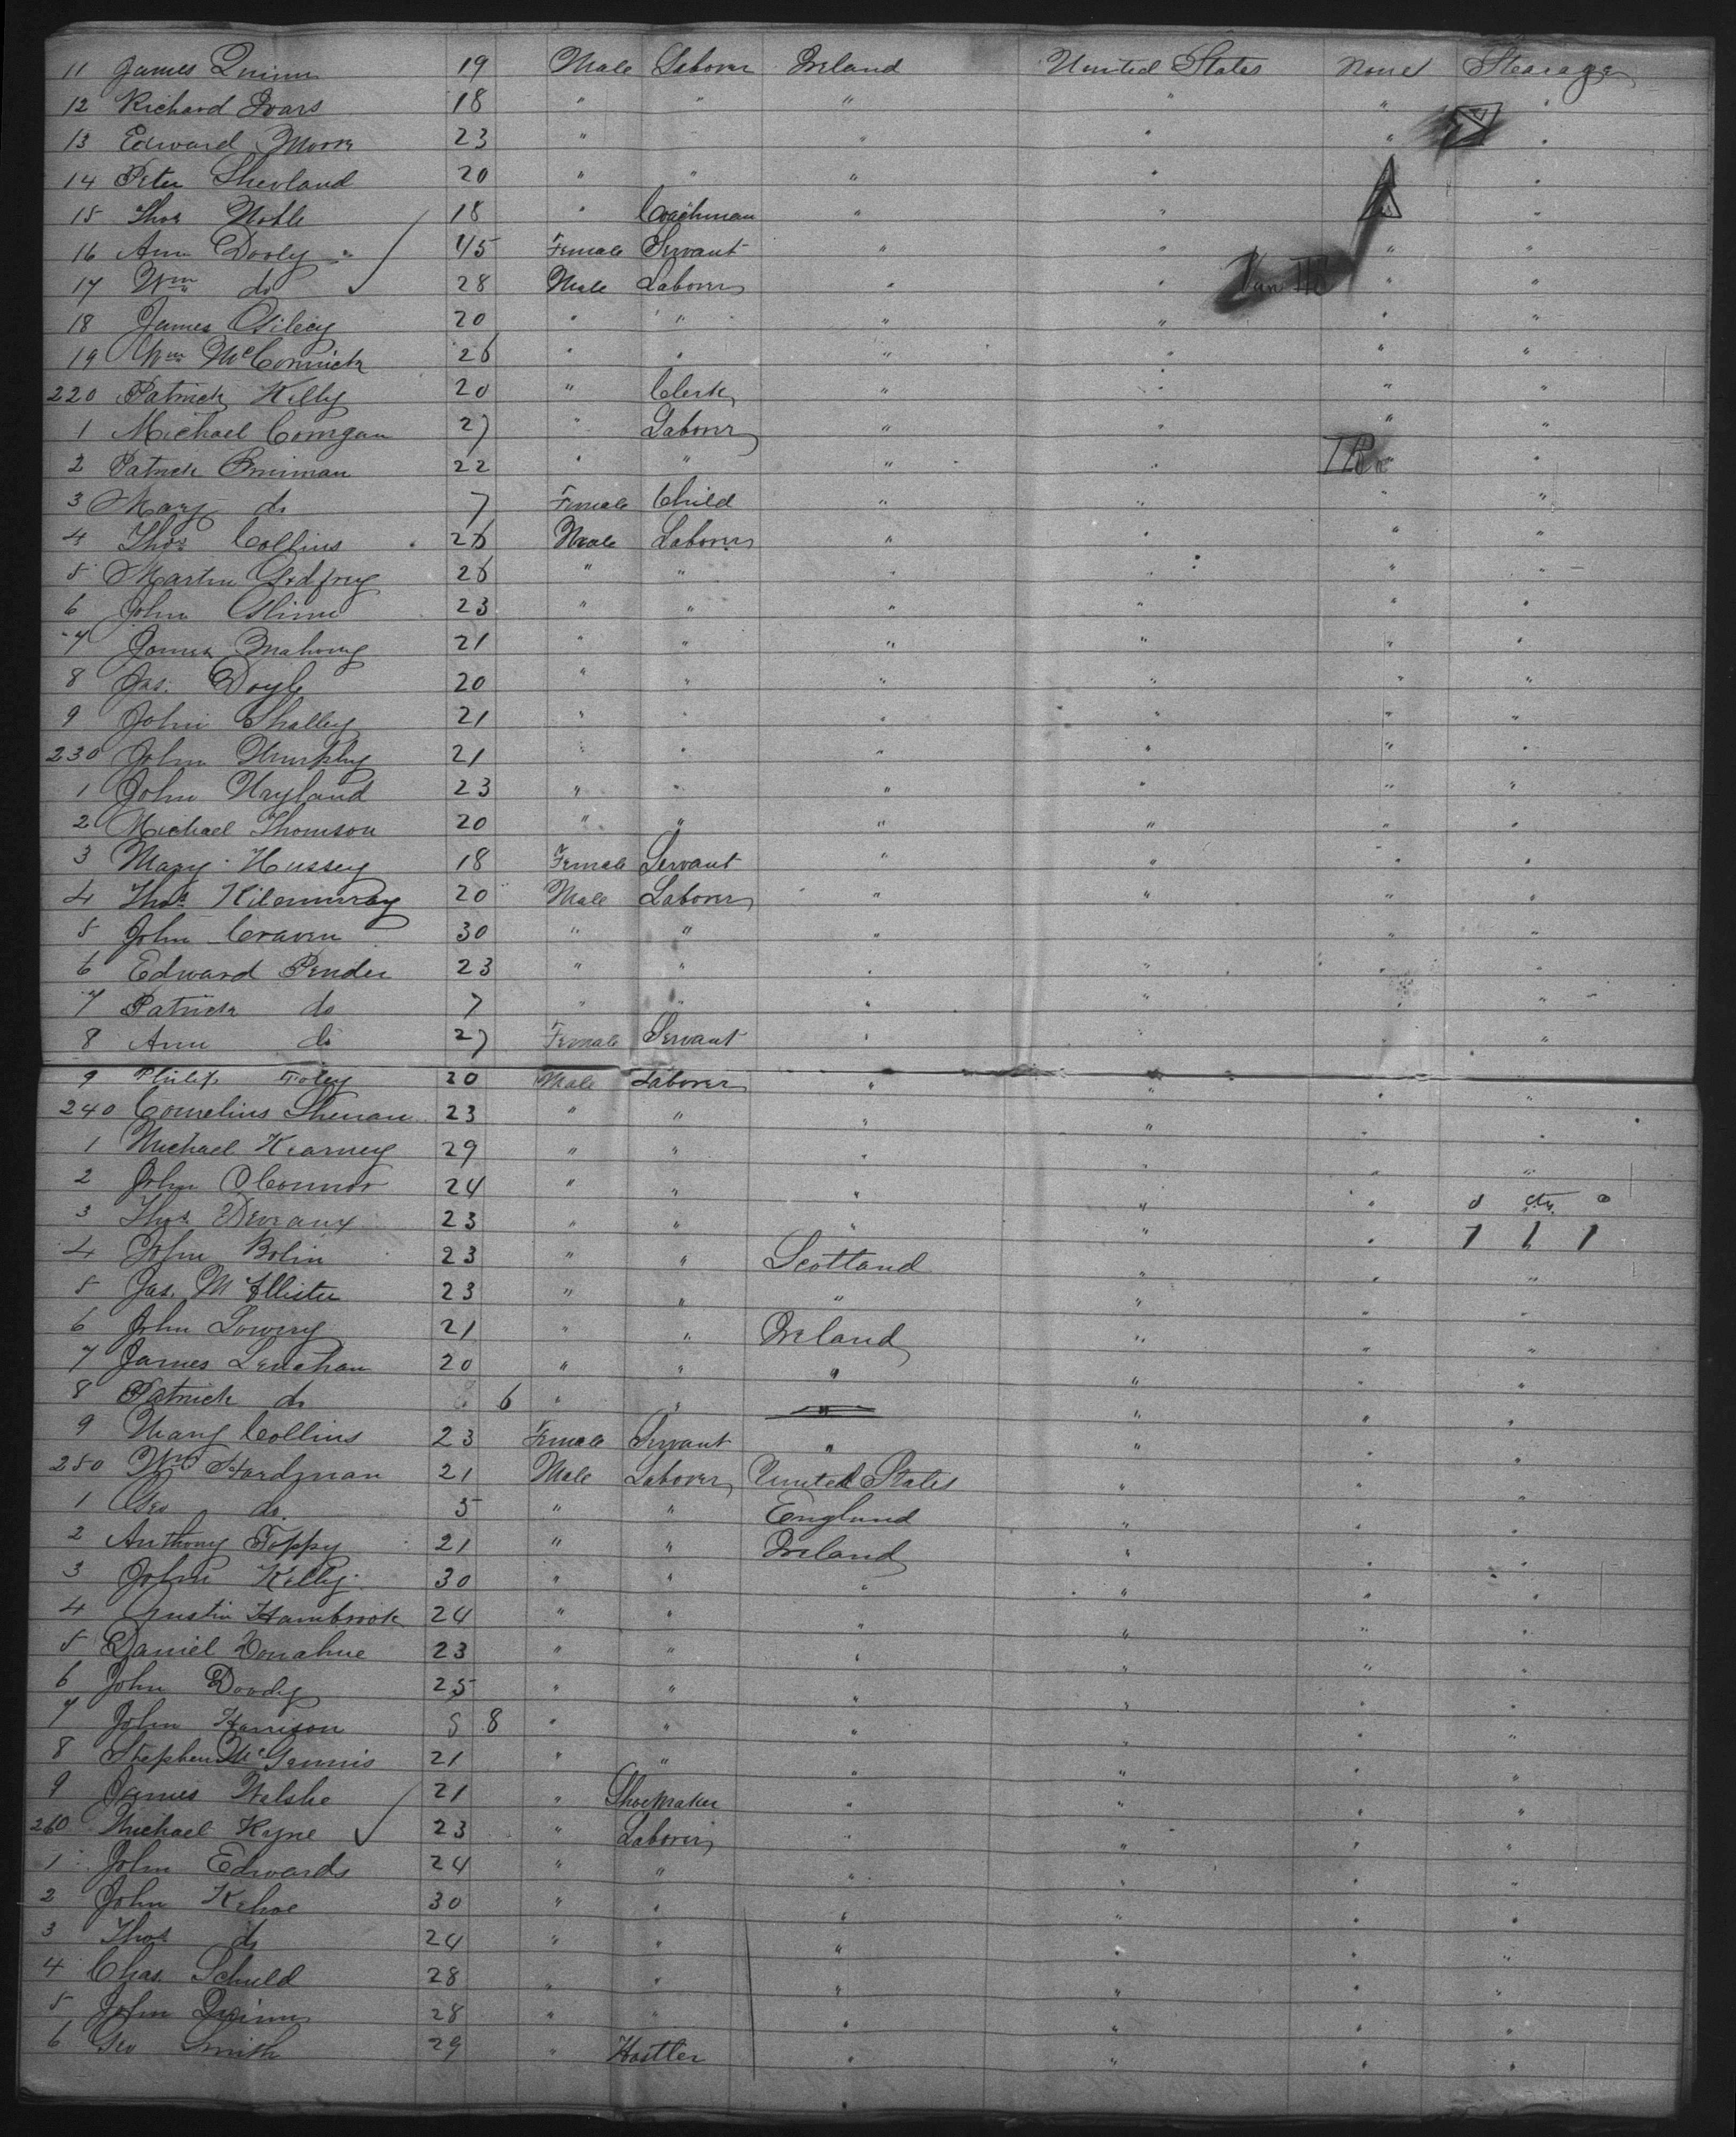 11 James Quinn 19 Male Laborer Ireland United States None Stearage
12 Richard Ivars 18 " " " " " "
13 Edward Moore 23 " " " " "
14 Peter Shevland 20 " " " " "
15 Thos Noble 18 " Coachman " " "
16 Ann Dooly 45 Female Servant " " " "
17 Wm do 28 Male Laborer " " " "
18 James 20 " " " " " "
19 Wm McCormick 26 " " " " " "
220 Patrick Kelly 20 " Clerk " " " "
1 Michael Corrigan 27 " Laborer " " " "
2 Patrick 22 " " " " " "
3 Mary do 7 Female Child " " " "
4 Thos Collins 26 Male Laborer " " " "
5 Martin Godfrey 26 " " " " " "
6 John 23 " " " " " "
7 James Mahony 21 " " " " " "
8 Jas. Doyle 20 " " " " " "
9 John Shalley 21 " " " " " "
230 John Murphy 21 " " " " " "
1 John Hyland 23 " " " " " "
2 Michael Thomson 20 " " " " " "
3 Mary Hussey 18 Female Servant " " " "
4 Thos Kilmurray 20 Male Laborer " " " "
5 John Craven 30 " " " " " "
6 Edward Pender 23 " " " " " "
7 Patrick do 7 " " " " " "
8 Ann do 27 Female Servant " " " "
9 Philip Foley 20 Male Laborer " " " "
240 Cornelius Shenan 23 " " " " " "
1 Michael Kearney 29 " " " " " "
2 John OConnor 24 " " " " "
3 Thos Deveaux 23 " " " " " 1 1 1
4 John Bolin 23 " " Scotland " " "
5 Jas. McAllister 23 " " " " " "
6 John Lowery 21 " " Ireland " " "
7 James Lenehan 20 " " " " " "
8 Patrick do 6 " " " " " "
9 Mary Collins 23 Female Servant " " " "
250 Wm Hardman 21 Male Laborer United States " " "
1 Geo do. 5 " " England " " "
2 Anthony Foppy 21 " " Ireland " " "
3 John Kelly 30 " " " " " "
4 Hambrook 24 " " " " " "
5 Daniel Donahue 23 " " " " " "
6 John Doody 25 " " " " " "
7 John Harrison 8 " " " " " "
8 Stephen McGennis 21 " " " " " "
9 James Walshe 21 " Shoemaker " " " "
260 Michael Kyne 23 " Laborer " " " "
1 John Edwards 24 " " " " " "
2 John Kehoe 30 " " " " " "
3 Thos do 24 " " " " " "
4 Chas. Schuld 28 " " " " " "
5 John Quinn 28 " " " " " "
6 Geo Smith 29 " Hostler " " " "